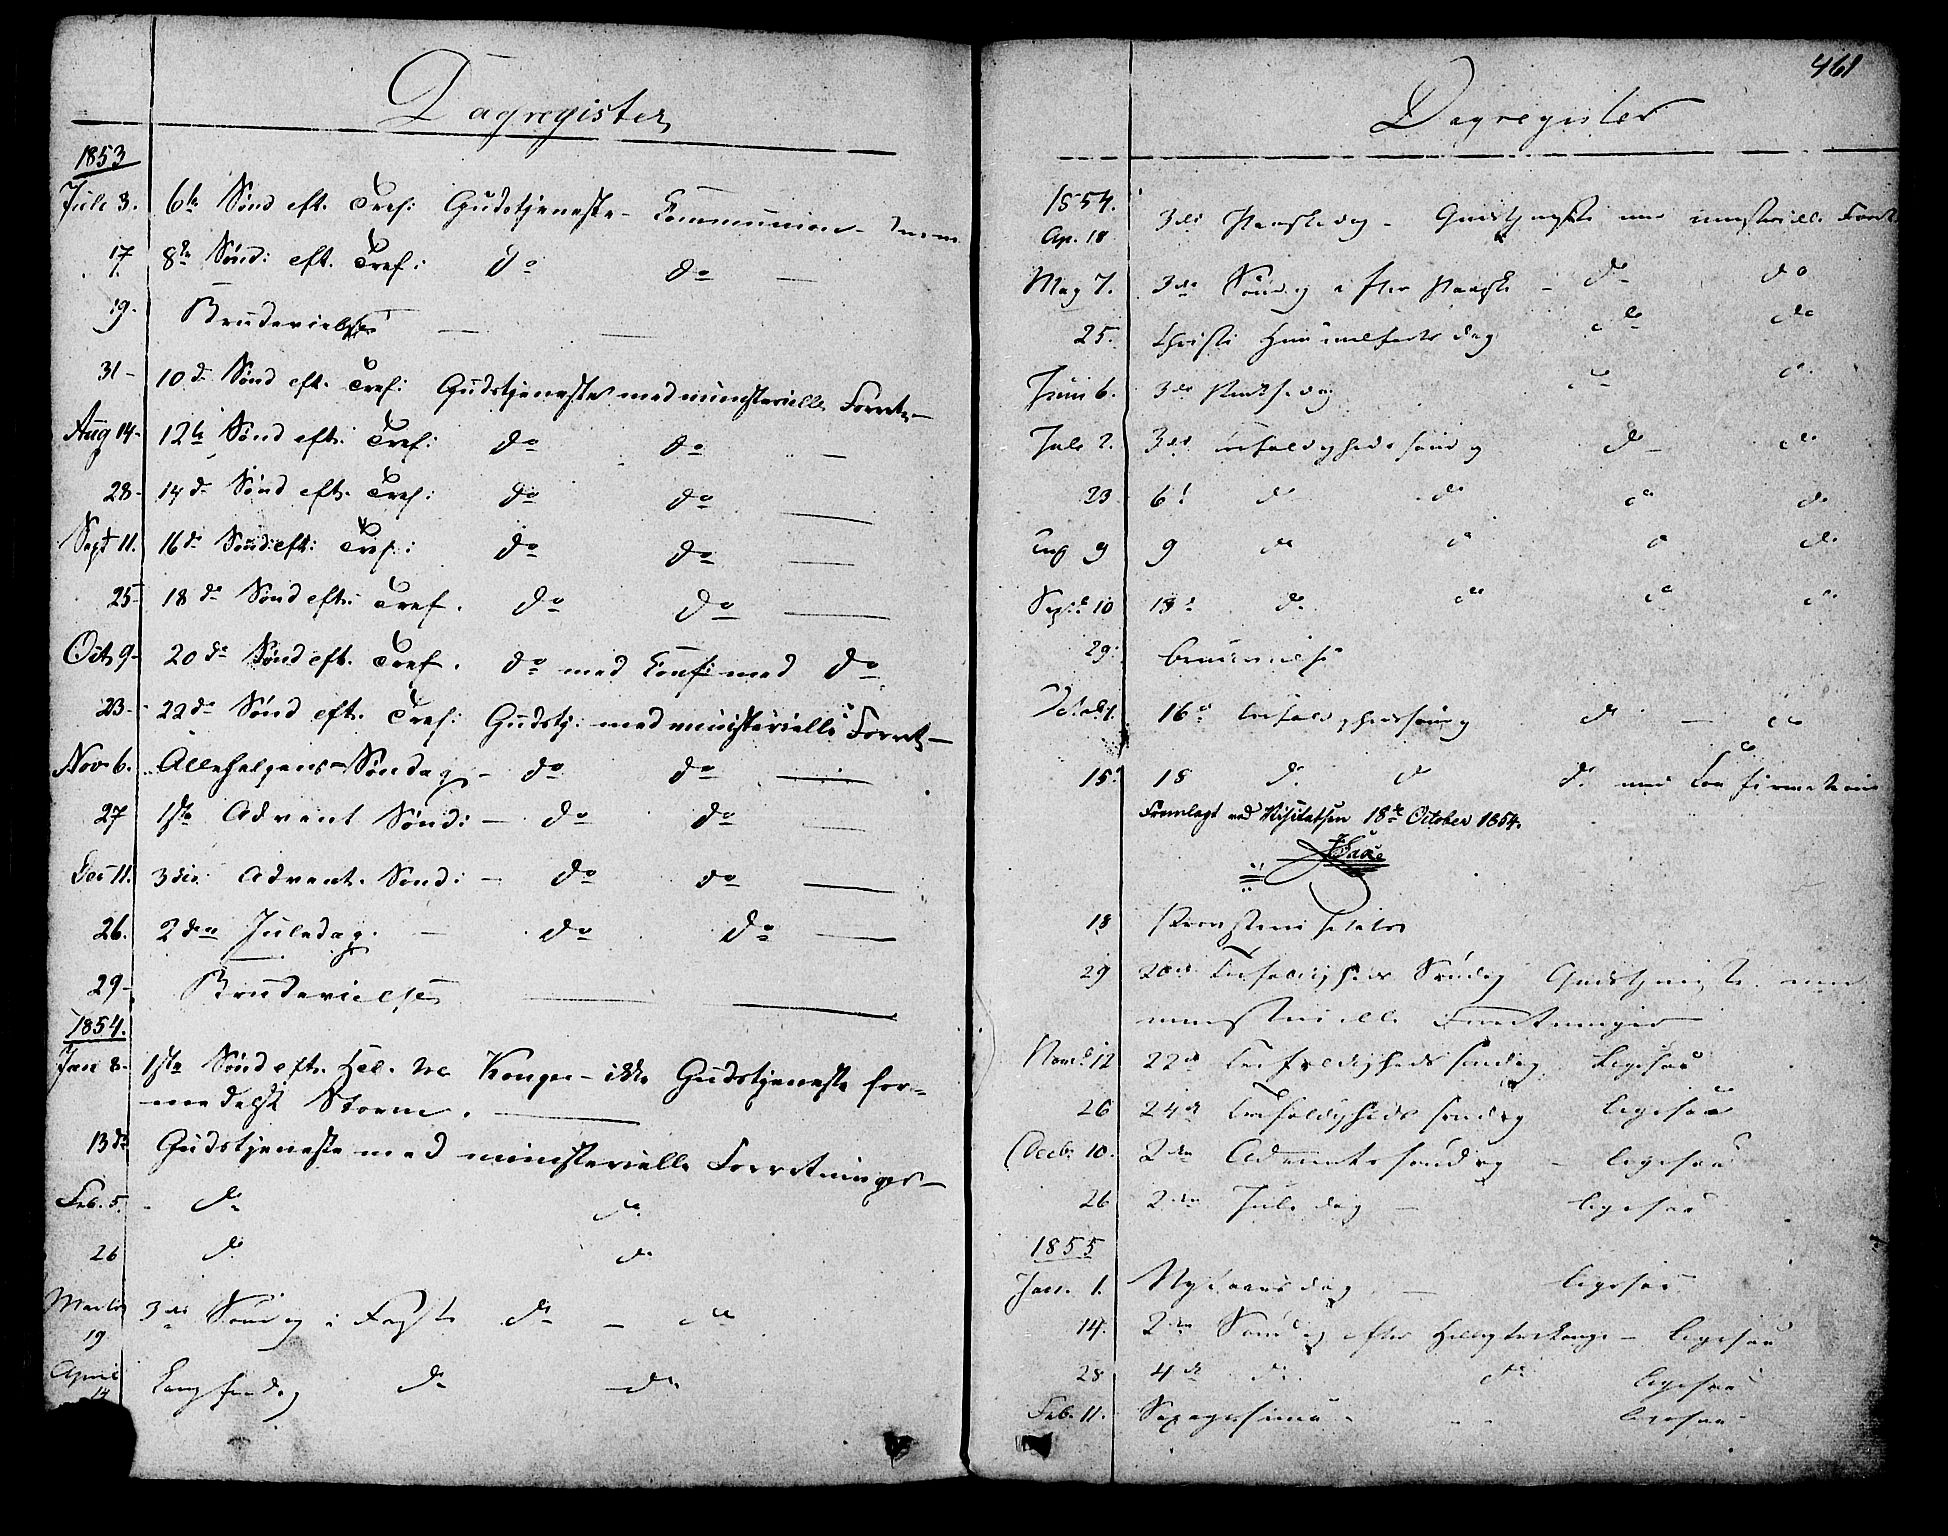 Dagregister
1853
Juli 3. 6te Sønd eft. Tref: Gudstjeneste - Communion -
17 8de Sønd: eft. Tref: do do —
19. Brudevielse — —
31 - 10de Sønd eft. Tref: Gudstjeneste med ministerielle Forretn—
Aug 14 - 12te Sønd eft: Tref: do do —
28 - 14de Sønd eft. Tref: do do —
Sept 11. 16de Sønd: eft: Tref: do do —
25 - 18de Sønd eft: Tref. do do —
Oct 9 - 20de Sønd eft. Tref. do med Conf: med do
23 - 22de Sønd eft. Tref: Gudstj: med ministerielle Forret—
Nov 6. Allehelgens-Søndag - do do —
27 1ste Advent Sønd: — do do —
Dec 11. 3die Advent. Sønd: — do do —
26. 2den Juledag. — do do —
29 - Brudevielse — —
1854.
Jan 8. 1ste Sønd eft. Hel. tre Konger - ikke Gudstjeneste for-
medelst Storm. —
13de Gudstjeneste med ministerielle Forretninger —
Feb. 5. - do do
26 do do
Martii
19 3die Søndag i Faste do — do
April
14 Langfredag do do
461
Dagregister
1854.
Ap. 18 3die Paaskedag - Gudstjeneste med ministerielle Forret
May 7. 3die Søndag efter Paaske - do do
25. Christi Himmelfarts dag do do
Juni 6. 3die Pintsedag do do
Juli 2. 3die Trefoldigheds søndag do - do
23 6t do do do do
Aug 9 9 do do do do
Septbr 10 13de do do do do
29. Brudevielse
Octob 1. 16de Trefoldighedssøndag do — do
15. 18 do do do med Confirmation
Fremlagt ved Visitatsen 18de October 1854.
18
29 20de Trefoldigheds Søndag Gudstjeneste med
ministerielle Forretninger
Novb. 12 22de Trefoldigheds søndag ligesaa
26 24de Trefoldigheds søndag ligesaa
Decbr 10. 2den Adventssøndag - ligesaa
26 2den Juledag — ligesaa
1855
Jan. 1. Nytaarsdag — ligesaa
14. 2den Søndag efter Helligtrekonge — ligesaa
28 4de do do ligesaa
Feb. 11. Sexagesima - - - ligesaa -